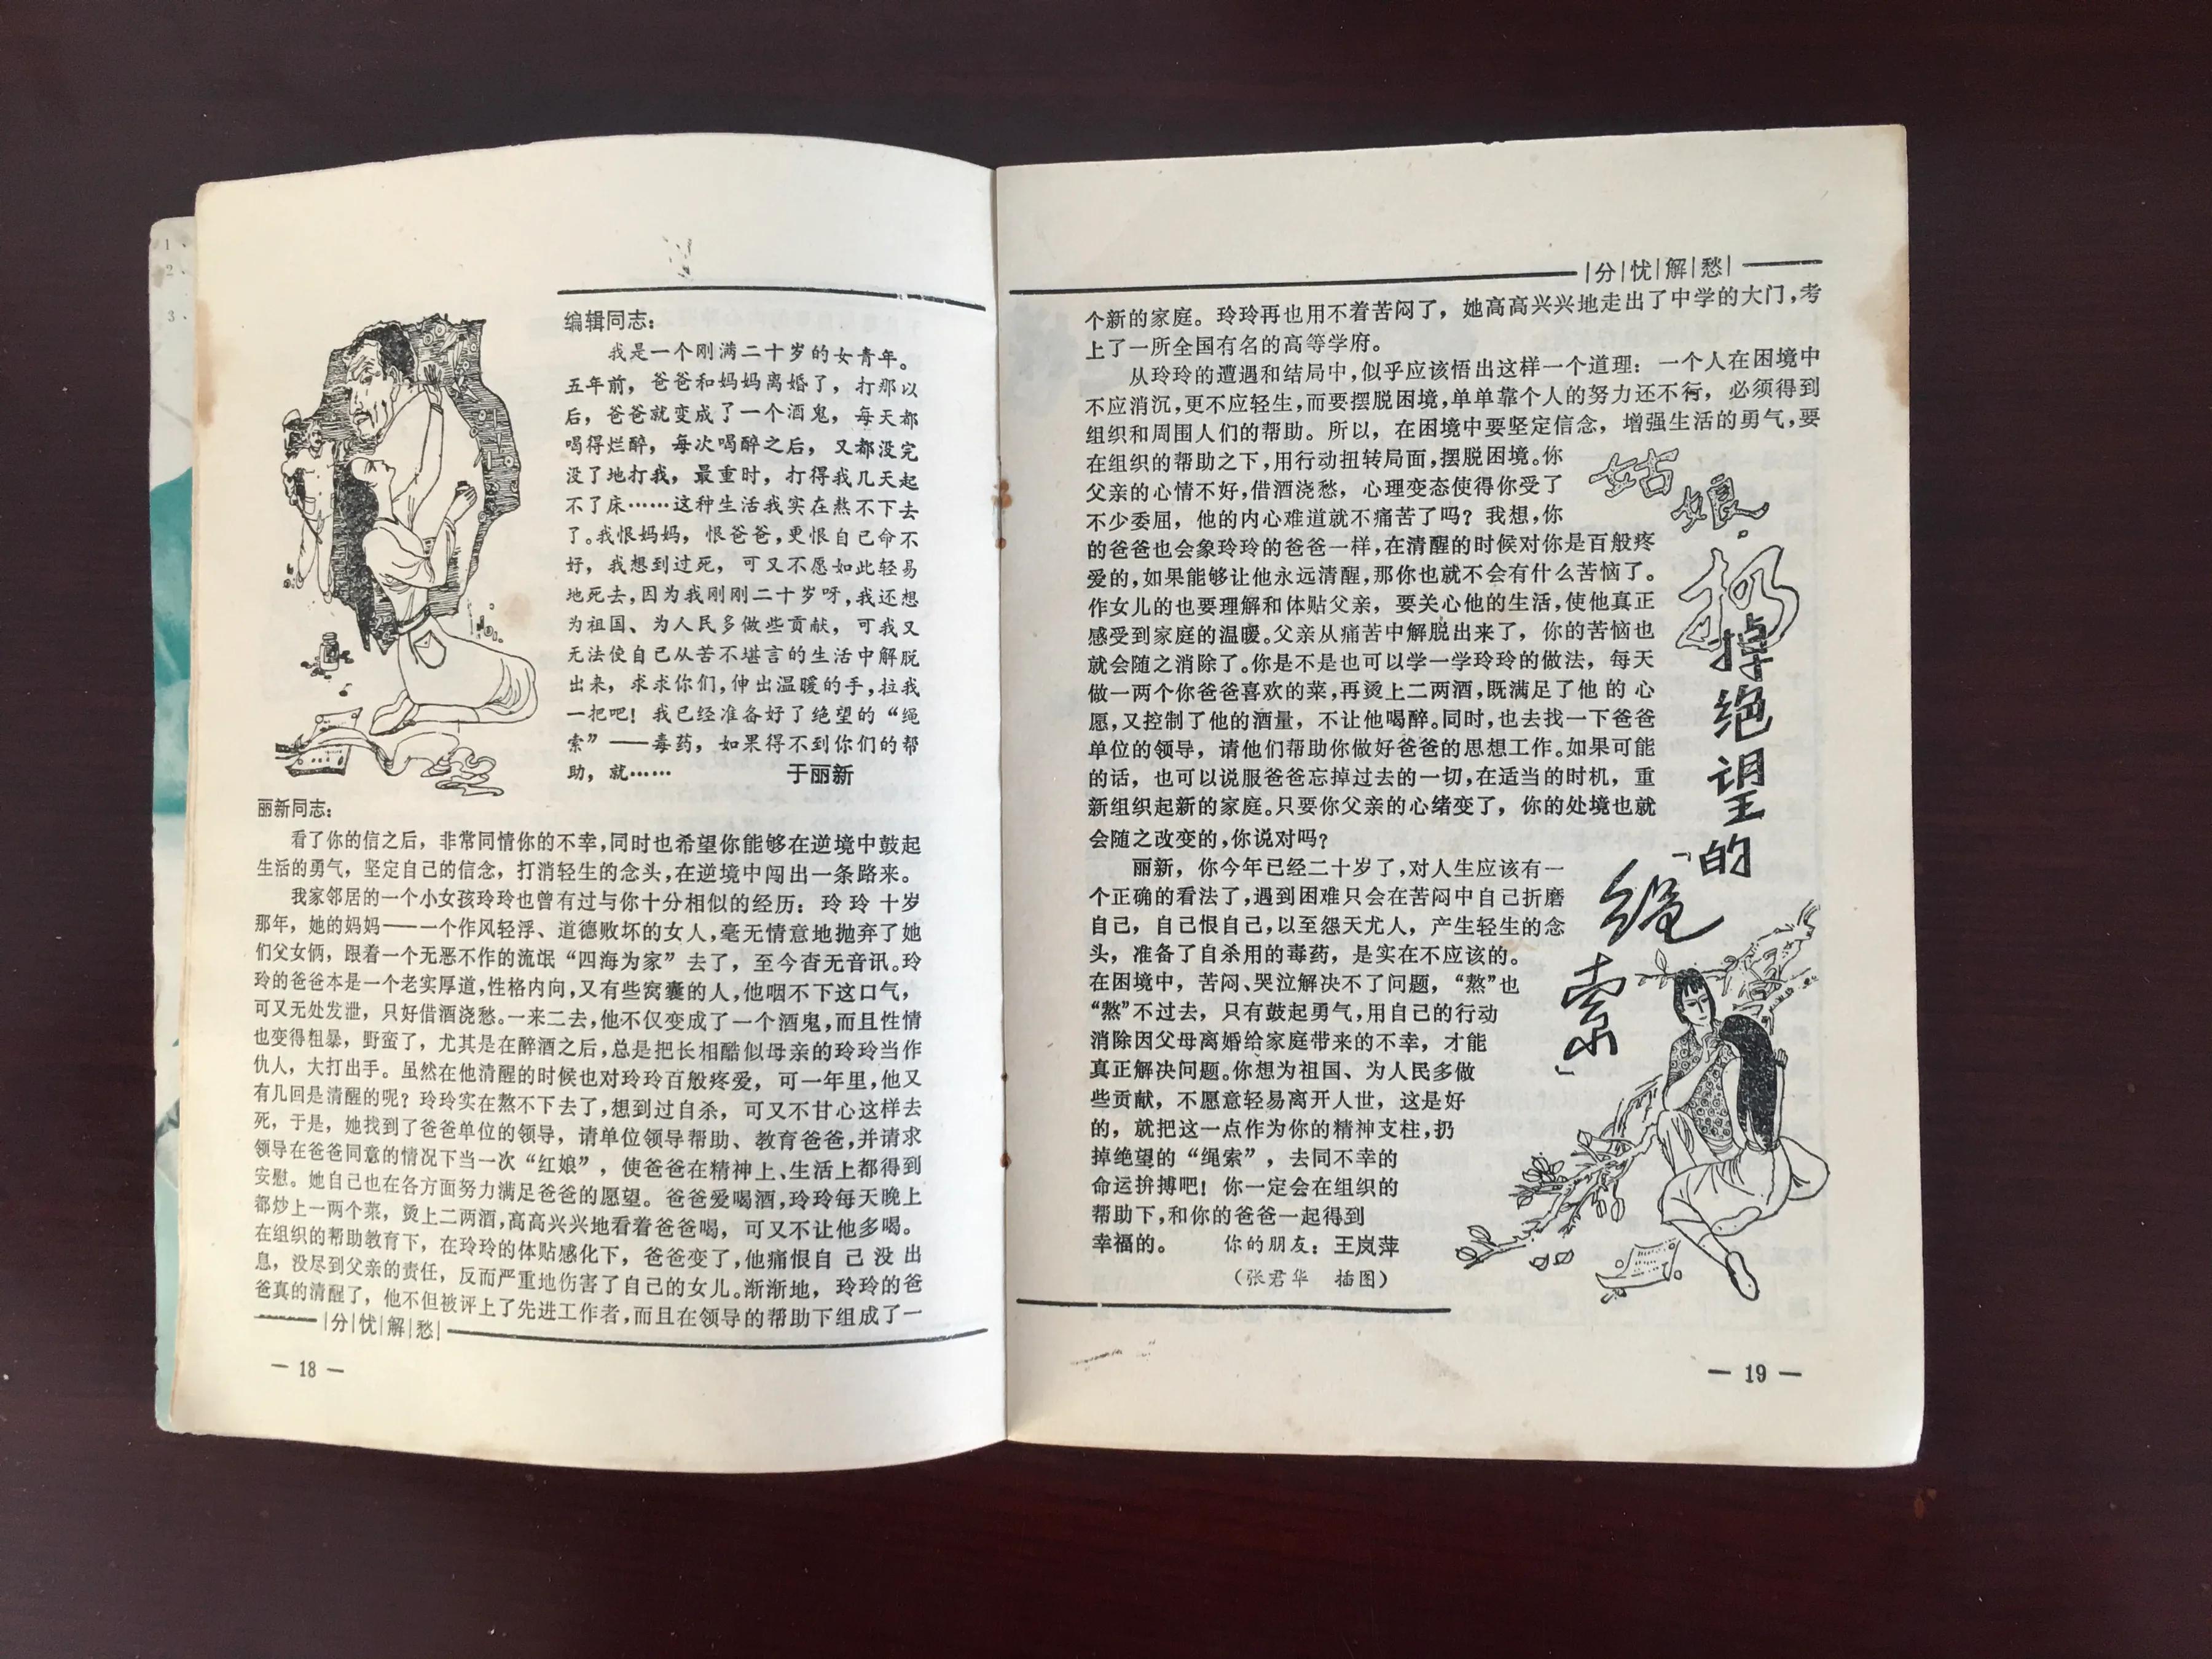 1、
2、
3、
编辑同志：
我是一个刚满二十岁的女青年。
五年前，爸爸和妈妈离婚了，打那以
后，爸爸就变成了一个酒鬼，每天都
喝得烂醉，每次喝醉之后，又都没完
没了地打我，最重时，打得我几天起
不了床……这种生活我实在熬不下去
了。我恨妈妈，恨爸爸，更恨自己命不
好，我想到过死，可又不愿如此轻易
地死去，因为我刚刚二十岁呀，我还想
为祖国、为人民多做些贡献，可我又
无法使自己从苦不堪言的生活中解脱
出来，求求你们，伸出温暖的手，拉我
一把吧！我已经准备好了绝望的“绳
索”——毒药，如果得不到你们的帮
助，就…… 于丽新
丽新同志：
看了你的信之后，非常同情你的不幸，同时也希望你能够在逆境中鼓起
生活的勇气，坚定自己的信念，打消轻生的念头，在逆境中闯出一条路来。
我家邻居的一个小女孩玲玲也曾有过与你十分相似的经历：玲玲十岁
那年，她的妈妈——一个作风轻浮、道德败坏的女人，毫无情意地抛弃了她
们父女俩，跟着一个无恶不作的流氓“四海为家”去了，至今杳无音讯。玲
玲的爸爸本是一个老实厚道，性格内向，又有些窝囊的人，他咽不下这口气，
可又无处发泄，只好借酒浇愁。一来二去，他不仅变成了一个酒鬼，而且性情
也变得粗暴，野蛮了，尤其是在醉酒之后，总是把长相酷似母亲的玲玲当作
仇人，大打出手。虽然在他清醒的时候也对玲玲百般疼爱，可一年里，他又
有几回是清醒的呢？玲玲实在熬不下去了，想到过自杀，可又不甘心这样去
死，于是，她找到了爸爸单位的领导，请单位领导帮助、教育爸爸，并请求
领导在爸爸同意的情况下当一次“红娘”，使爸爸在精神上、生活上都得到
安慰。她自己也在各方面努力满足爸爸的愿望。爸爸爱喝酒，玲玲每天晚上
都炒上一两个菜，烫上二两酒，高高兴兴地看着爸爸喝，可又不让他多喝。
在组织的帮助教育下，在玲玲的体贴感化下，爸爸变了，他痛恨自己没出
息，没尽到父亲的责任，反而严重地伤害了自己的女儿。渐渐地，玲玲的爸
爸真的清醒了，他不但被评上了先进工作者，而且在领导的帮助下组成了一
|分|忧|解|愁|
— 18 —
|分|忧|解|愁|
个新的家庭。玲玲再也用不着苦闷了，她高高兴兴地走出了中学的大门，考
上了一所全国有名的高等学府。
从玲玲的遭遇和结局中，似乎应该悟出这样一个道理：一个人在困境中
不应消沉，更不应轻生，而要摆脱困境，单单靠个人的努力还不行，必须得到
组织和周围人们的帮助。所以，在困境中要坚定信念，增强生活的勇气，要
在组织的帮助之下，用行动扭转局面，摆脱困境。你
父亲的心情不好，借酒浇愁，心理变态使得你受了
不少委屈，他的内心难道就不痛苦了吗？我想，你
的爸爸也会象玲玲的爸爸一样，在清醒的时候对你是百般疼
爱的，如果能够让他永远清醒，那你也就不会有什么苦恼了。
作女儿的也要理解和体贴父亲，要关心他的生活，使他真正
感受到家庭的温暖。父亲从痛苦中解脱出来了，你的苦恼也
就会随之消除了。你是不是也可以学一学玲玲的做法，每天
做一两个你爸爸喜欢的菜，再烫上二两酒，既满足了他的心
愿，又控制了他的酒量，不让他喝醉。同时，也去找一下爸爸
单位的领导，请他们帮助你做好爸爸的思想工作。如果可能
的话，也可以说服爸爸忘掉过去的一切，在适当的时机，重
新组织起新的家庭。只要你父亲的心绪变了，你的处境也就
会随之改变的，你说对吗？
丽新，你今年已经二十岁了，对人生应该有一
个正确的看法了，遇到困难只会在苦闷中自己折磨
自己，自己恨自己，以至怨天尤人，产生轻生的念
头，准备了自杀用的毒药，是实在不应该的。
在困境中，苦闷、哭泣解决不了问题，“熬”也
“熬”不过去，只有鼓起勇气，用自己的行动
消除因父母离婚给家庭带来的不幸，才能
真正解决问题。你想为祖国、为人民多做
些贡献，不愿意轻易离开人世，这是好
的，就把这一点作为你的精神支柱，扔
掉绝望的“绳索”，去同不幸的
命运拚搏吧！你一定会在组织的
帮助下，和你的爸爸一起得到
幸福的。 你的朋友：王岚萍
（张君华 插图）
姑娘，扔掉绝望的「绳索」
— 19 —